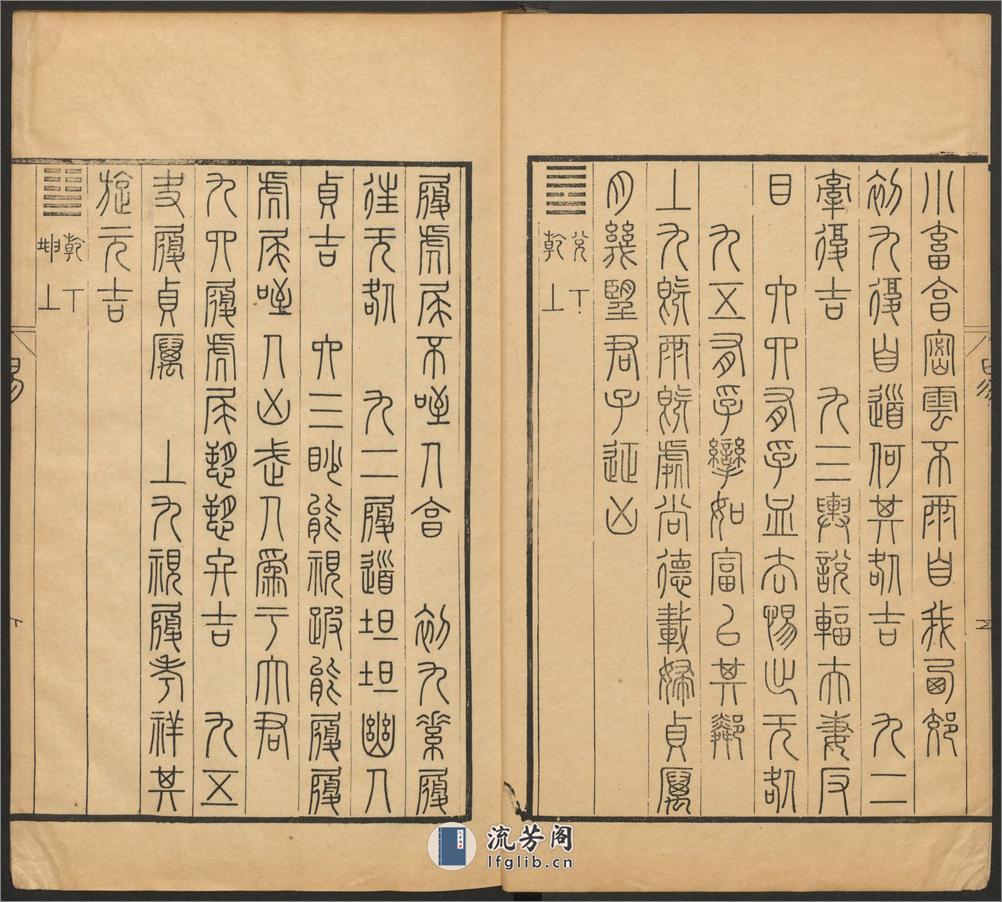 小畜亨密雲不雨自我西郊
初九復自道何其咎吉　九二
牽復吉　九三輿說輻夫妻反
目　六四有孚血去惕出无咎
九五有孚攣如富以其鄰
上九既雨既處尚德載婦貞厲
月幾望君子征凶
䷉ 兌下
乾上
履虎尾不咥人亨　初九素履
往无咎　九二履道坦坦幽人
貞吉　六三眇能視跛能履履
虎尾咥人凶武人為于大君
九四履虎尾愬愬終吉　九五
夬履貞厲　上九視履考祥其
旋元吉
䷊ 乾下
坤上
易
流芳阁
lfglib.cn